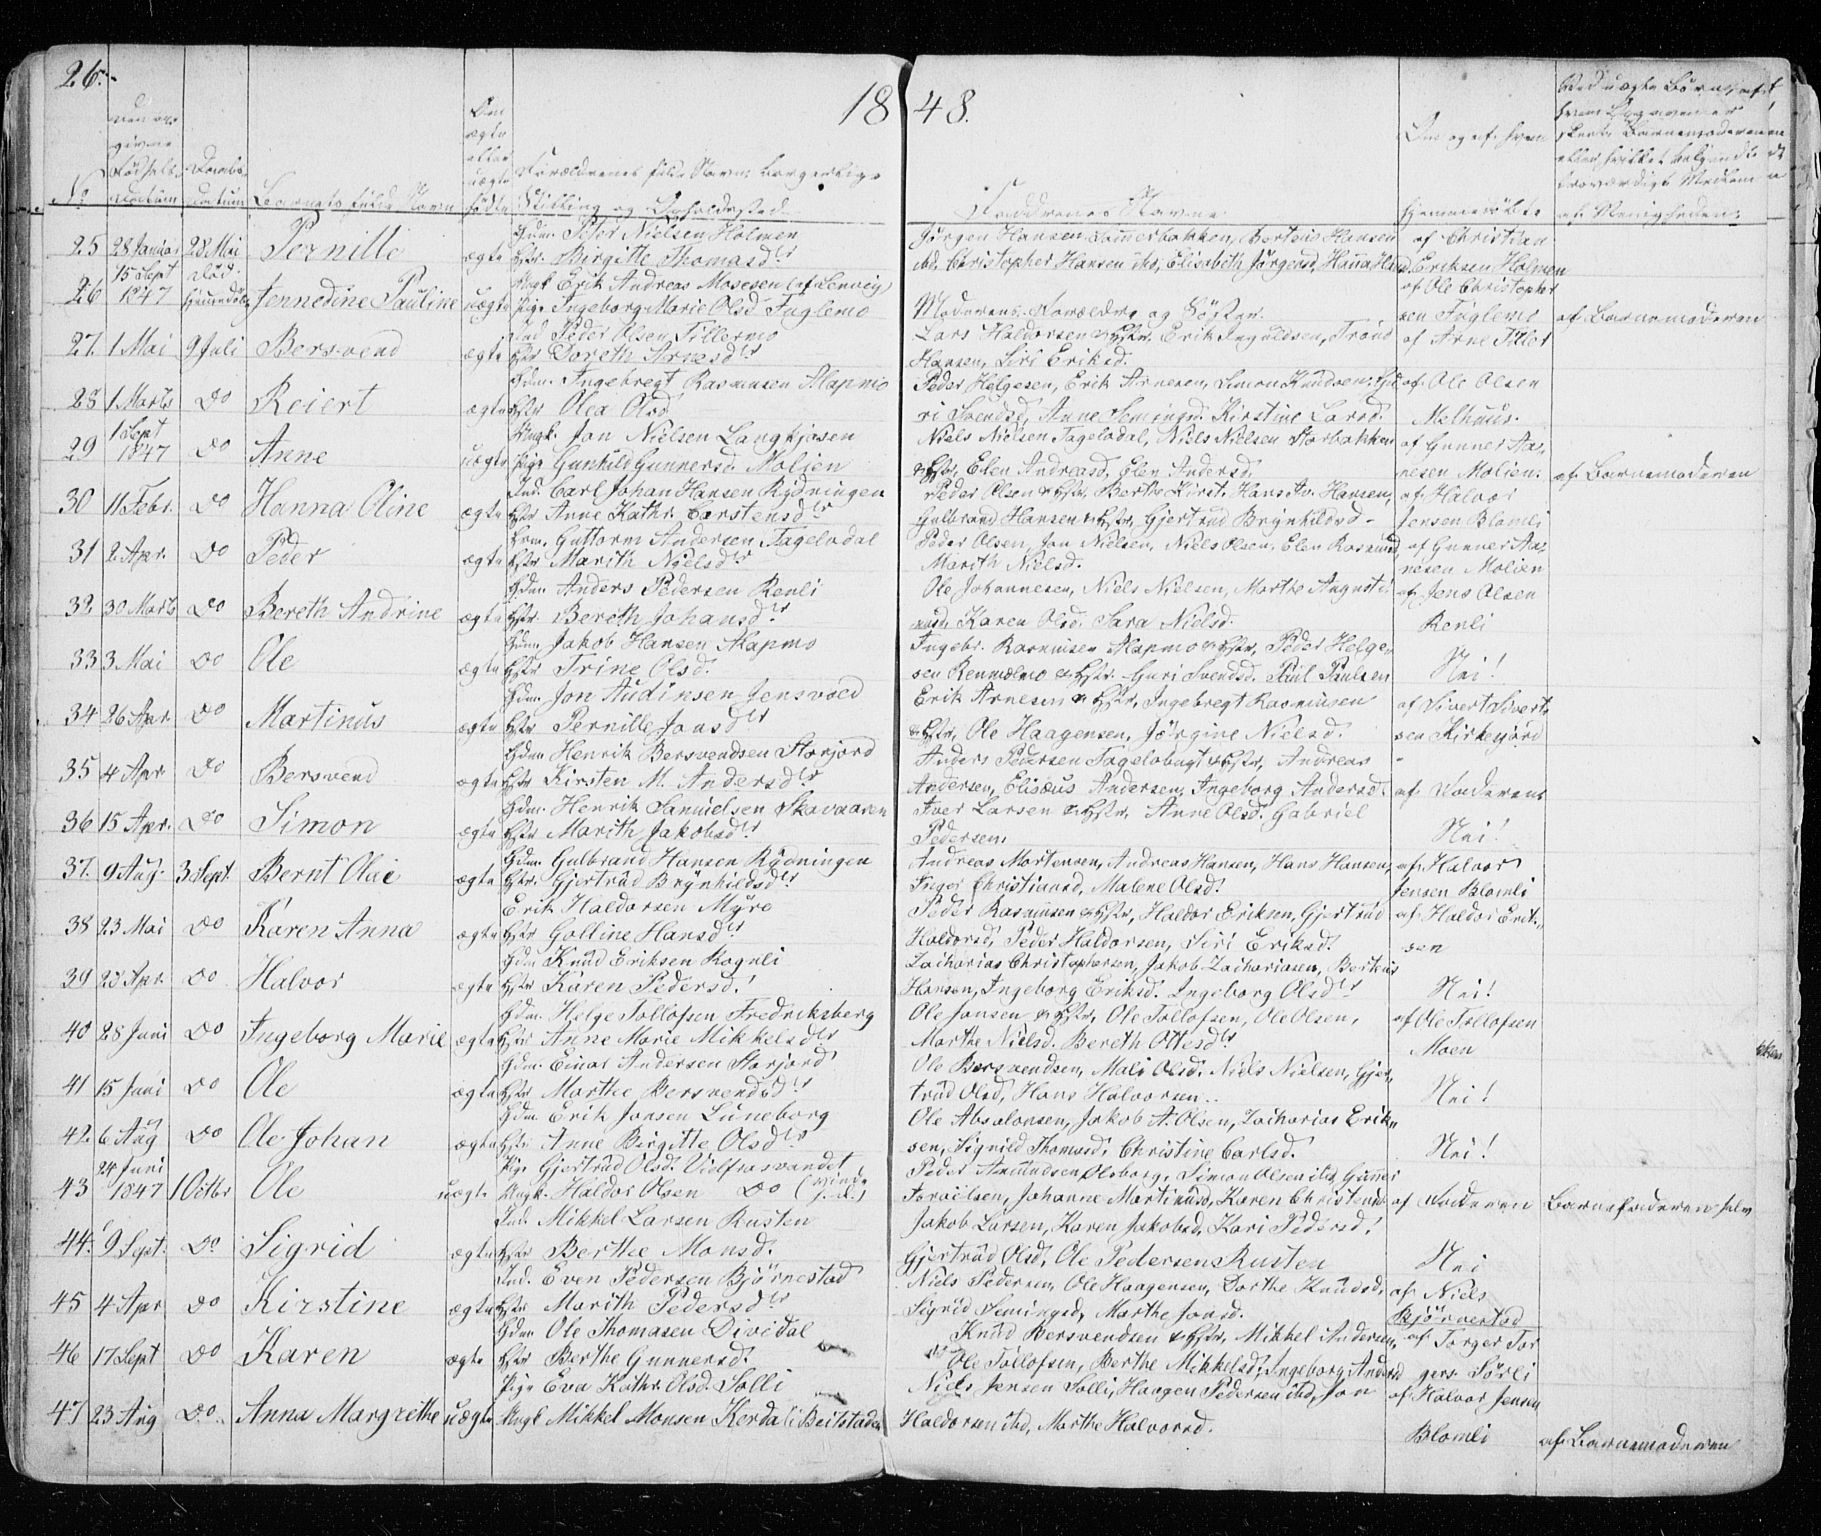 26.
18 48.
No
Den angivne Fødsels-Datum
Daabs-Datum
Barnets fulde Navn
Om ægte eller uægte fødte
Forældrenes fulde Navn, borgerlige Stilling og Opholdssted
Faddrenes Navne
Om og af hvem hjemmedøbt
25 28 Januar 28 Mai Pernille ægte Gdm. Peder Nielsen Holmen
Hstr. Birgitte Thomasdtr
Jørgen Hansen Sommerbakken, Berteus Hansen
ibd, Christopher Hansen ibd, Elisabeth Jørgensd, Hanna
af Christian
Eriksen Holmen
26 15 Sept 1847 Jennedine Pauline uægte Ungk Erik Andreas Mosesen (af Lenvig)
Pige Ingeborg Marie Olsd Fuglemo
Moderens Forældre og Søster.
af Ole Christophersen Fuglemo
af Barnemoderen
27. 1 Mai 9 Juli Bersvend ægte Ind Peder Olsen Tillermo
Hstr Goreth Arnesdtr
Lars Haldorsen & Hstr, Erik Ingvaldsen, Trond
Hansen, Siri Eriksd.
af Arne Tiller
28 1 Marts Do Reiert ægte Gdm. Ingebregt Rasmusen Alapmo
Hstr Olea Olsd
Peder Helgesen, Erik Arnesen, Simon Knudsen, Gu
ri Svendsd, Anne Semingsd. Kirstine Larsd.
af Ole Olsen
Melhuus.
29 1 Sept 1847 Do Anne uægte Ungk. Jon Nielsen Langkjosen
Pige Gunhild Gunnersd. Molien
Niels Nielsen Fagelidal, Niels Nielsen Storbakken
& Hstr, Elen Andreasd, Elen Andersd.
af Gunner Aa-
nesen Molien.
af Barnemoderen
30 11 Febr. Do Hanna Oline ægte Ind. Carl Johan Hansen Rydningen
Hstr Anne Kathr. Carstensdtr
Peder Olsen & Hstr, Berthe Kirst. Hansd, Hansen,
Gulbrand Hansen & Hstr, Gjertrud Brynhildsd.
af Halvor
Jensen Blomli
31 2 Apr. Do Peder ægte Gdm. Guttorm Andersen Fagelidal
Hstr Marith Nielsdtr
Peder Olsen, Jon Nielsen, Niels Olsen, Elen Rasmusd,
Marith Nielsd.
af Gunner Aa-
nesen Molien
32 30 Marts Do Bereth Andrine ægte Gdm. Anders Pedersen Renli
Hstr. Bereth Johansdtr
Ole Johannesen, Niels Nielsen, Marthe Augusti
nusd, Karen Olsd. Sara Nielsd.
af Jens Olsen
Renli
33 3 Mai Do Ole ægte Gdm. Jakob Hansen Alapmo
Hstr Trine Olsd.
Ingebr. Rasmusen Alapmo & Hstr, Peder Helge-
sen Renmælmo & Hstr. Guri Svendsd. Paul Paulsen
Nei!
34 26 Apr. Do Martinus ægte Gdm. Jon Audinsen Jensvold
Hstr Pernille Jonsdtr
Erik Arnesen & Hstr, Ingebregt Rasmusen
& Hstr, Ole Haagensen, Jørgine Nielsd.
af Sivert Sivert-
sen Kirkegjord
35 4 Apr Do Bersvend ægte Gdm. Henrik Bersvendsen Storjord
Hstr Kirsten M. Andersdtr
Anders Pedersen Fagelobugt & Hstr, Andreas
Andersen, Elisæus Andersen, Ingeborg Andersd.
af Faderens
36 15 Apr. Do Simon ægte Gdm. Henrik Samuelsen Skavaaren
Hstr Marith Jakobsdtr
Iver Larsen & Hstr, Anne Olsd. Gabriel
Pedersen.
Nei!
37. 9 Aug. 3 Sept. Bernt Olai ægte Gdm. Gulbrand Hansen Rydningen
Hstr. Gjertrud Brynhildsdtr
Andreas Mortensen, Andreas Hansen, Hans Hansen,
Inger Christiansd, Malene Olsd.
af Halvor
Jensen Blomli
38 23 Mai Do Karen Anna ægte Erik Haldorsen Myre
Hstr Golline Hansdtr
Peder Rasmusen & Hstr, Haldor Eriksen, Gjertrud
Haldorsd, Peder Haldorsen, Siri Eriksd.
af Haldor Erik-
sen
39 22 Apr. Do Halvor ægte Gdm Knud Eriksen Rognli
Hstr Karen Pedersd.
Zacharias Christophersen, Jakob Zachariasen, Berteus
Hansen, Ingeborg Eriksd. Ingeborg Olsdtr
Nei!
40 28 Juni Do Ingeborg Marie ægte Gdm. Helge Tollofsen Fredriksberg
Hstr Anne Marie Mikkelsdtr
Ole Jonsen & Hstr, Ole Tollofsen, Ole Olsen,
Marthe Nielsd. Bereth Ottesdtr
af Ole Tollofsen
Moen
41 15 Juni Do Ole ægte Gdm. Einar Andersen Storjord
Hstr Marthe Bersvendsdtr
Ole Bersvendsen, Mali Olsd, Niels Nielsen, Gjer-
trud Olsd, Hans Halvorsen.
Nei!
42. 6 Aug Do Ole Johan ægte Gdm Erik Jonsen Lüneborg
Hstr Anne Birgitte Olsdtr
Ole Absalonsen, Jakob A. Olsen, Zacharias Erik-
sen, Sigrild Thomasd, Christine Carlsd.
Nei!
43 24 Juni 1847 1 Octbr Ole uægte Pige Gjertrud Olsd. Vidfrasvandet
Ungk. Haldor Olsen Do
Peder Amundsen Olsborg, Simon Olsen ibd, Gunner
Torvilsen, Johanne Martinusd, Karen Christensd
af Faderen Barnefaderen selv
44. 9 Sept. Do Sigrid ægte Ind. Mikkel Larsen Rusten
Hstr Berthe Monsd.
Jakob Larsen, Karen Jakobsd, Kari Pedersd,
Gjertrud Olsd, Ole Pedersen Rusten
Nei
45 4 Apr Do Kirstine ægte Ind. Even Pedersen Bjørnestad
Hstr Marith Pedersdtr
Niels Pedersen, Ole Haagensen, Dorthe Knudsd,
Sigrid Semingsd, Marthe Jonsd.
af Niels
Bjørnestad
46 17 Sept Do Karen ægte Gdm Ole Thomasen Dividal
Hstr Berthe Gunnersd.
Knud Bersvendsen & Hstr, Mikkel Andersen,
Ole Tollofsen, Berthe Mikkelsd, Ingeborg Andersd
af Torger Tor
gers. Sørli
47 23 Aug Do. Anna Margrethe uægte Pige Eva Kathr. Olsd. Solli
Ungk Mikkel Monsen Kerdal i Beitstaden
Niels Jensen Solli, Haagen Pedersen ibd, Jon
Haldorsen ibd, Marthe Halvorsd.
af Halvor Jensen
Blomli
af Barnemoderen